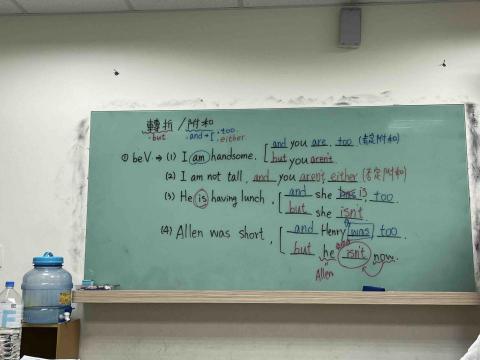 轉折 / 附和
but and + [ too
either
① be V. ⇒ (1) I am handsome. [ and you are, too (肯定附和)
but you aren't
(2) I am not tall, and you aren't either (否定附和)
(3) He is having lunch, [ and she is too.
but she isn't.
(4) Allen was short, [ and Henry was too.
but he isn't now.
Allen